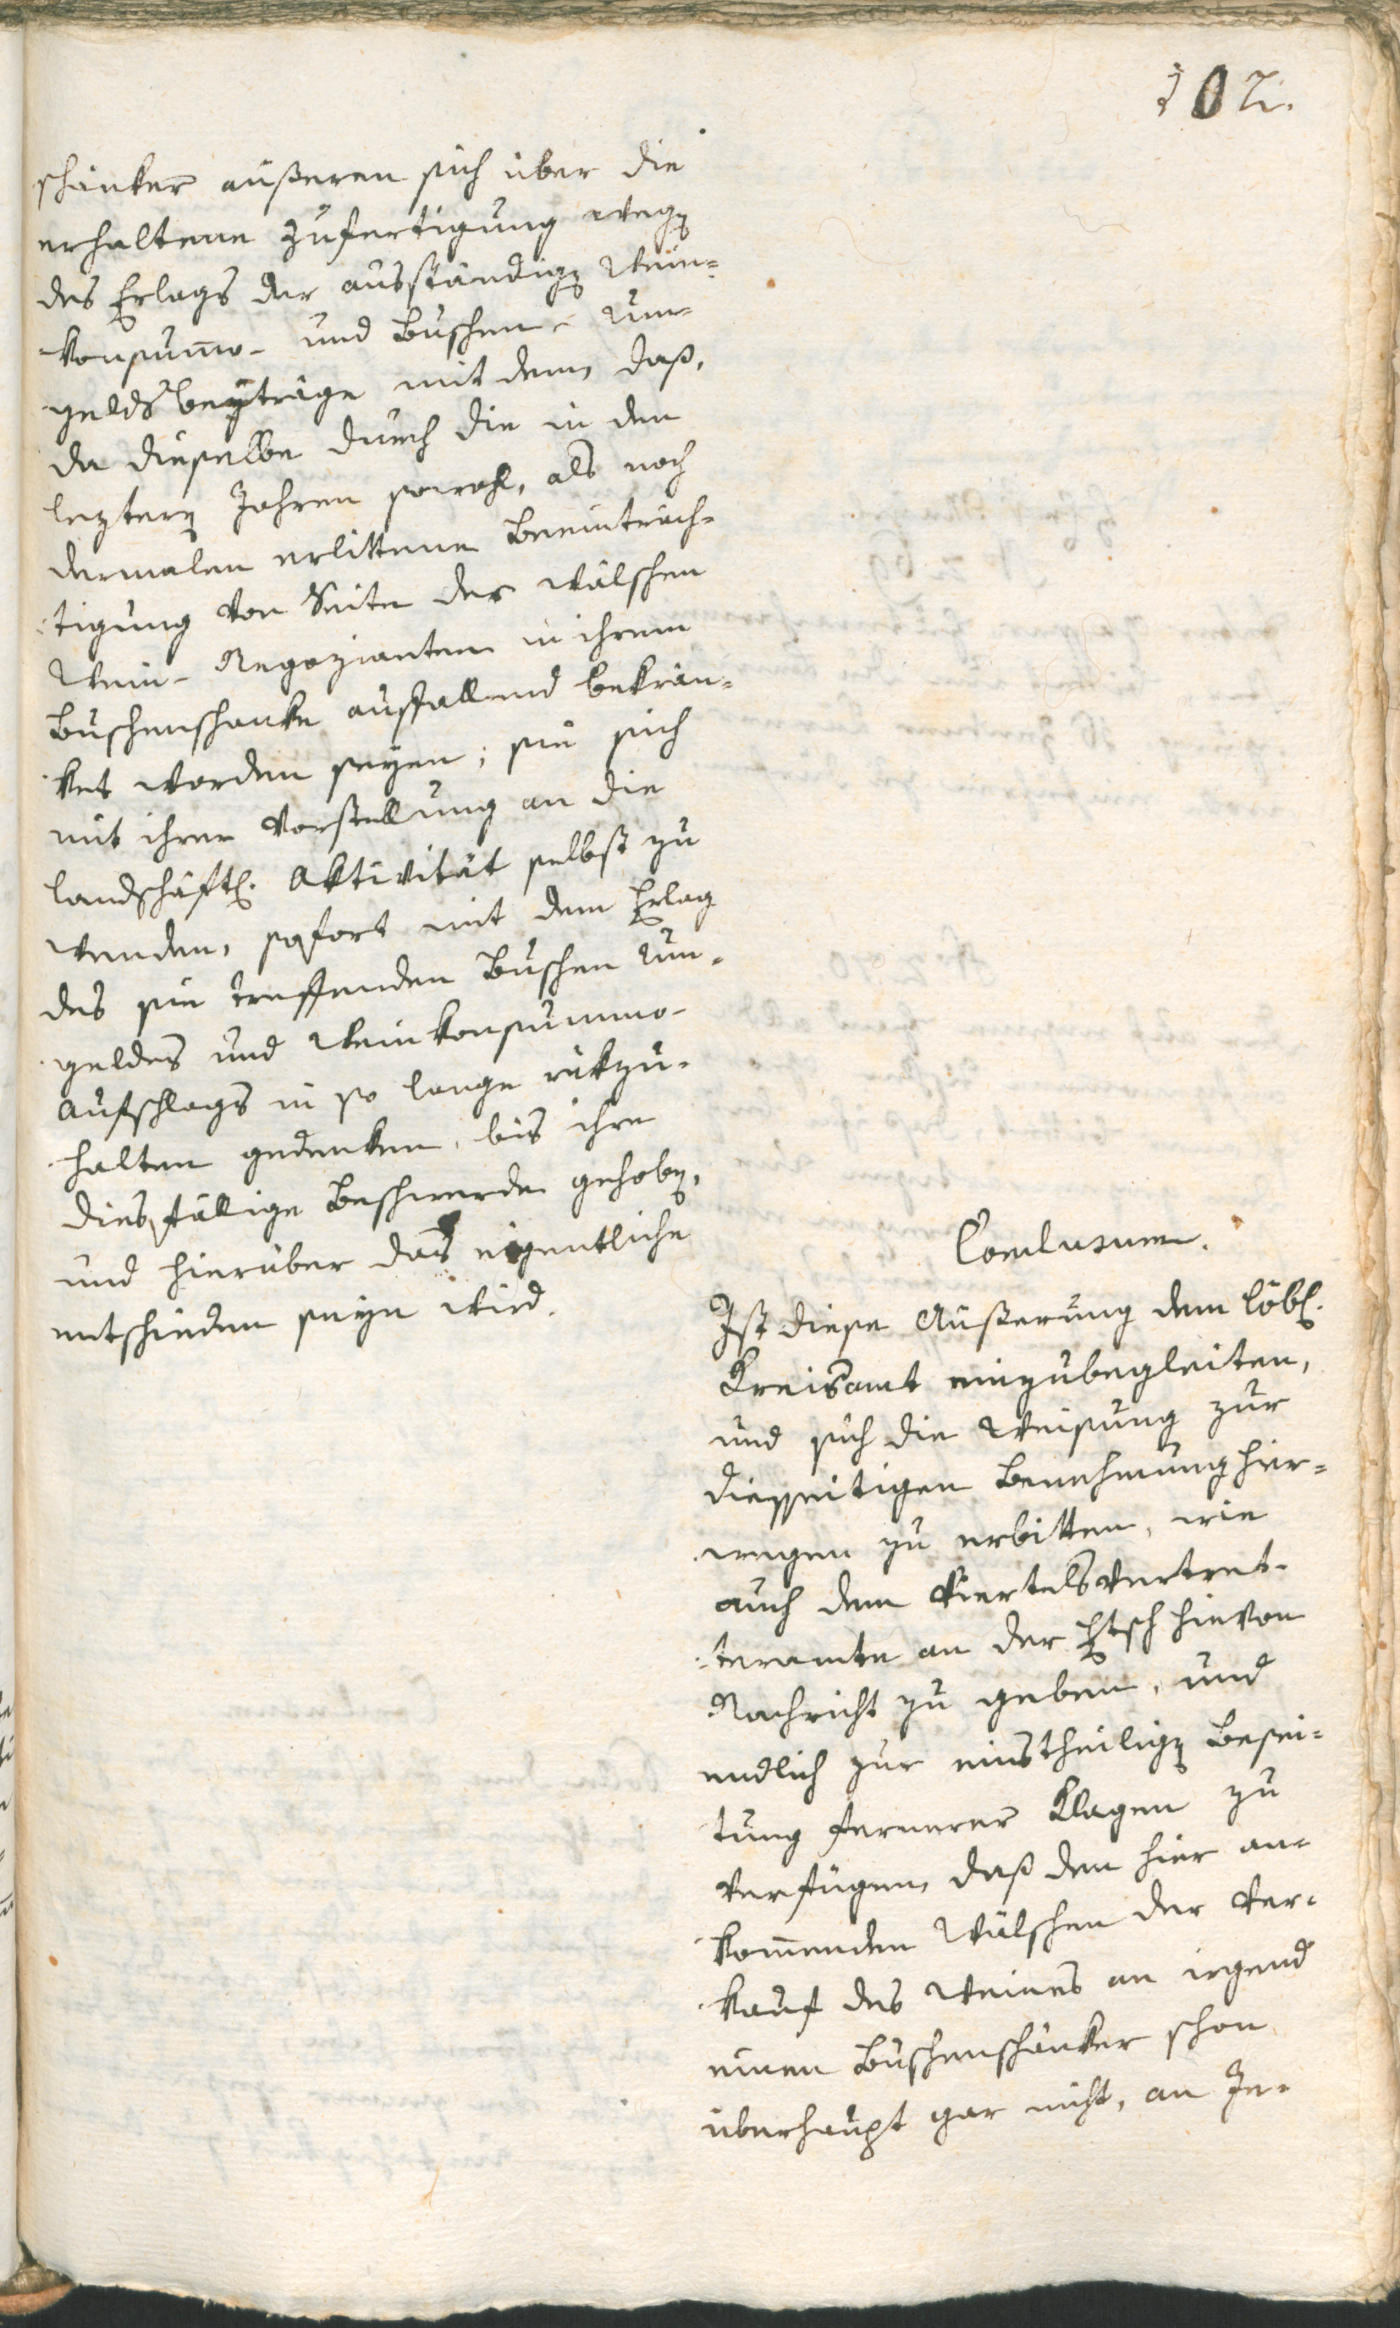 102.
schänker äußeren sich über die
erhaltene Zufertigung weg
des Erlags der ausständig Wein-
konsumo- und Buschen- Um-
geldsbeyträge mit dem, daß,
da dieselbe durch die in den
leztern Jahren sowohl, als noch
dermalen erlittene Beeinträch-
tigung von Seite der wälschen
Wein- Negozianten in ihrem
Buschenschanke auffallend bekrän-
ket worden seyen; sie sich
mit ihrer Vorstellung an die
landschäftl. Aktivität selbst zu
wenden, sofort mit dem Erlag
des sie treffenden Buschen Um-
geldes und Weinkonsummo-
Aufschlags in so lange rükzu-
halten gedenken, bis ihre
diesfällige Beschwerde gehoben,
und hierüber das eigentliche
entschieden seyn wird.
Conclusum.
Ist diese Äußerung dem löbl.
Kreisamt einzubegleiten,
und sich die Weisung zur
diesseitigen Benehmung hier-
wegen zu erbitten, wie
auch dem Viertelsvertret-
teramte an der Etsch hievon
Nachricht zu geben, und
endlich zur einstheilig Besei-
tung fernerer Klagen zu
verfügen, daß den hier an-
kommenden Wälschen der Ver-
kauf des Weines an irgend
einen Buschenschänker schon
überhaupt gar nicht, an Je-